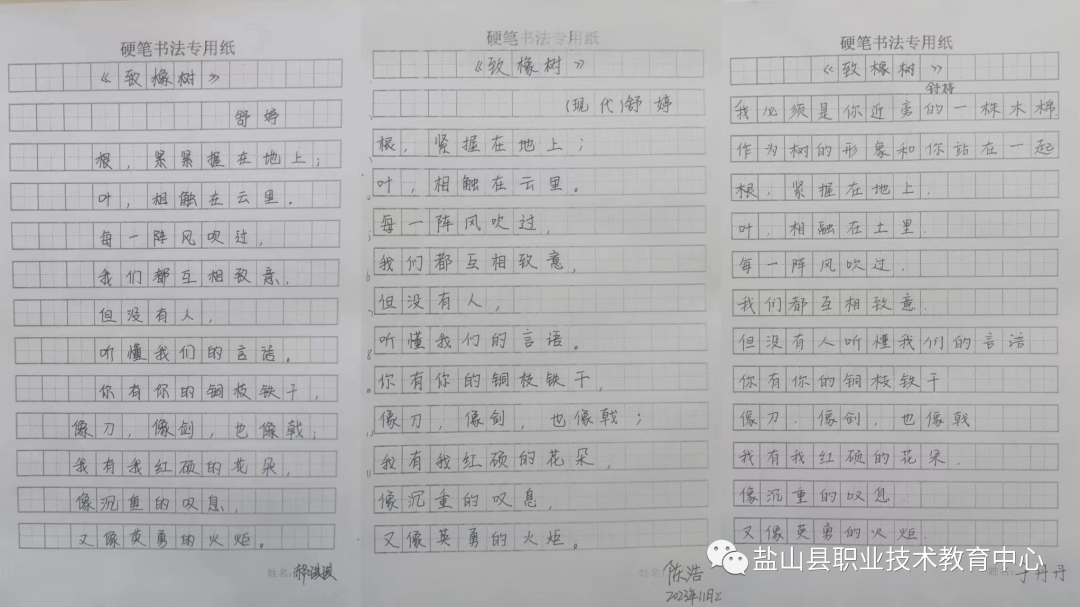 硬笔书法专用纸
《致橡树》
舒婷
根，紧紧握在地上；
叶，相触在云里。
每一阵风吹过，
我们都互相致意，
但没有人，
听懂我们的言语。
你有你的铜枝铁干，
像刀，像剑，也像戟；
我有我红硕的花朵，
像沉重的叹息，
又像英勇的火炬。
姓名：
硬笔书法专用纸
《致橡树》
（现代）舒婷
根，紧握在地上；
叶，相触在云里。
每一阵风吹过，
我们都互相致意，
但没有人，
听懂我们的言语。
你有你的铜枝铁干，
像刀，像剑，也像戟；
我有我红硕的花朵，
像沉重的叹息，
又像英勇的火炬。
姓名：陈浩
2023年11月2
硬笔书法专用纸
《致橡树》
舒婷
我必须是你近旁的一株木棉
作为树的形象和你站在一起
根，紧握在地上.
叶，相融在土里.
每一阵风吹过.
我们都互相致意.
但没有人听懂我们的言语
你有你的铜枝铁干
像刀.像剑，也像戟
我有我红硕的花朵.
像沉重的叹息
又像英勇的火炬.
丁丹丹
盐山县职业技术教育中心